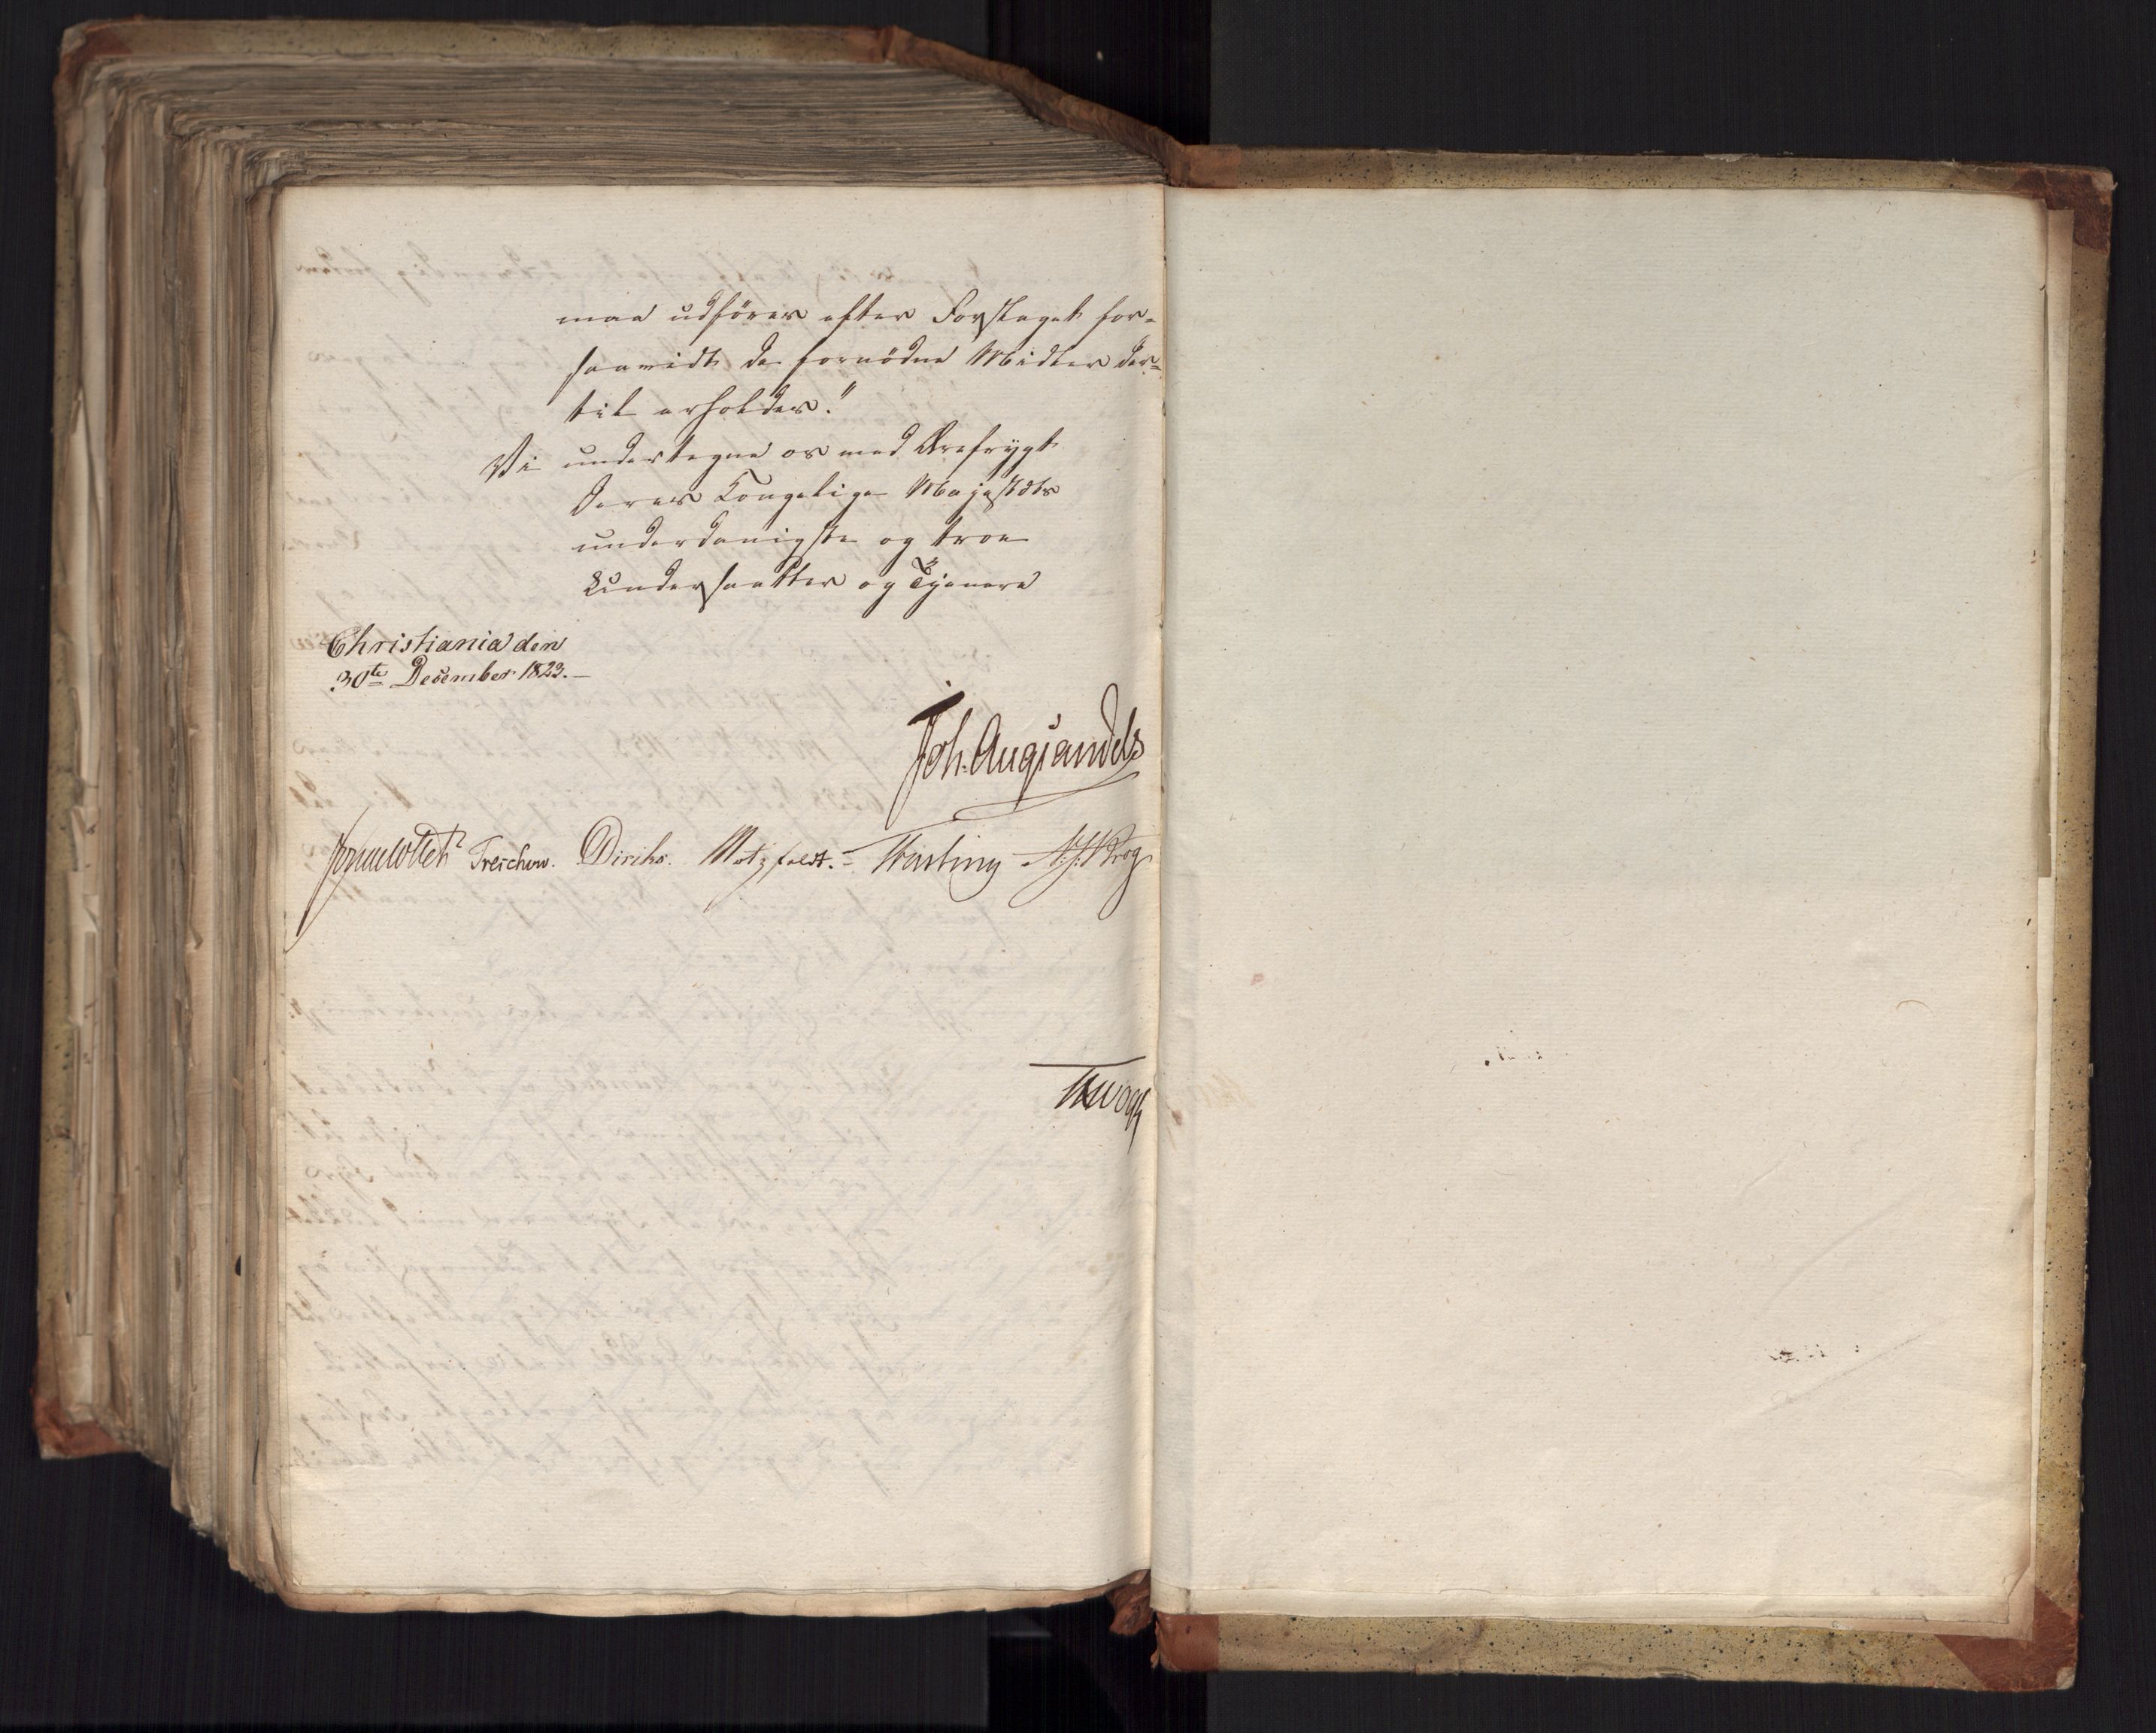 maa udføres efter Forslaget for-
saavidt de fornødne Midler der-
til erholdes."
Vi undertegne os med Ærefrygt
Deres Kongelige Majestæts
underdanigste og troe
Undersaatter og Tjenere
Christiania den
30te December 1823.
Joh. Aug Sandels
Jonas Collett Treschow. Diriks. Motzfeldt. Fasting N. J. Krog
Vogt